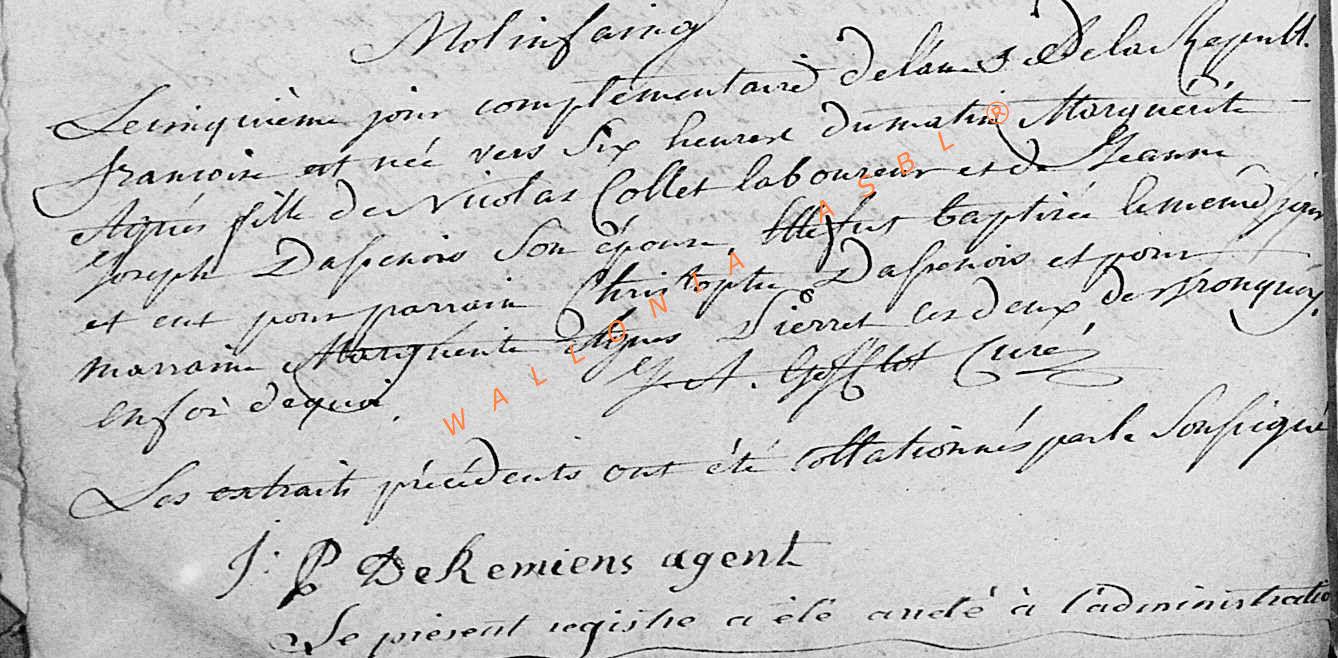 Molinfaing
Le cinquième jour complémentaire de l'an 5 de la Republ.
francoise est née vers Six heures du matin Marguerite
Agnés fille de Nicolas Collet laboureur et de Jeanne
Joseph Daspenois Son épouse, Elle fut baptisée le meme jour
et eut pour parrain Christophe Daspenois et pour
marraine Marguerite Agnes Pierret les deux de Tronquoy.
en foi de quoi.
J. A. Curé
Les extraits précédents ont été collationnés par le Soussigné
J: P DeKemiens agent
Le présent registre a été areté à l'administratio
WALLONIA ASBL ®